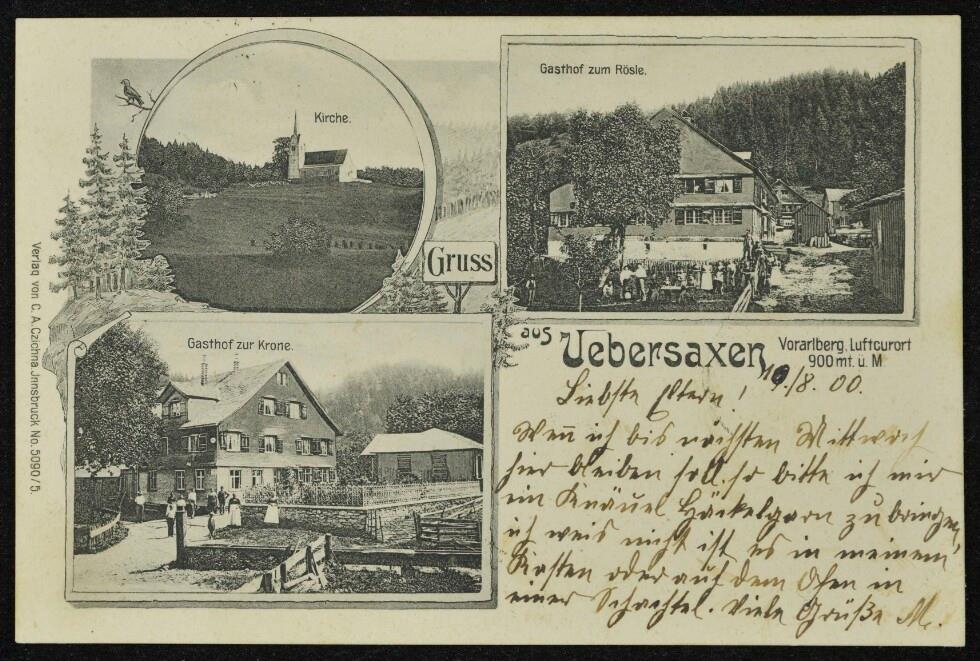 Kirche.
Gasthof zum Rösle.
Gruss
aus Uebersaxen
Vorarlberg, Luftcurort
900 mt. ü. M.
Gasthof zur Krone.
Verlag von C. A. Czichna, Innsbruck No. 5090/5.
/8. 00.
Liebste Eltern!
Wenn ich bis nächsten Mittwoch
hier bleiben soll, so bitte ich mir
ein Knäuel Häckelgarn zu bringen,
ich weis nicht ist es in meinem
Kasten oder auf dem Ofen in
einer Schachtel. Viele Grüße M.